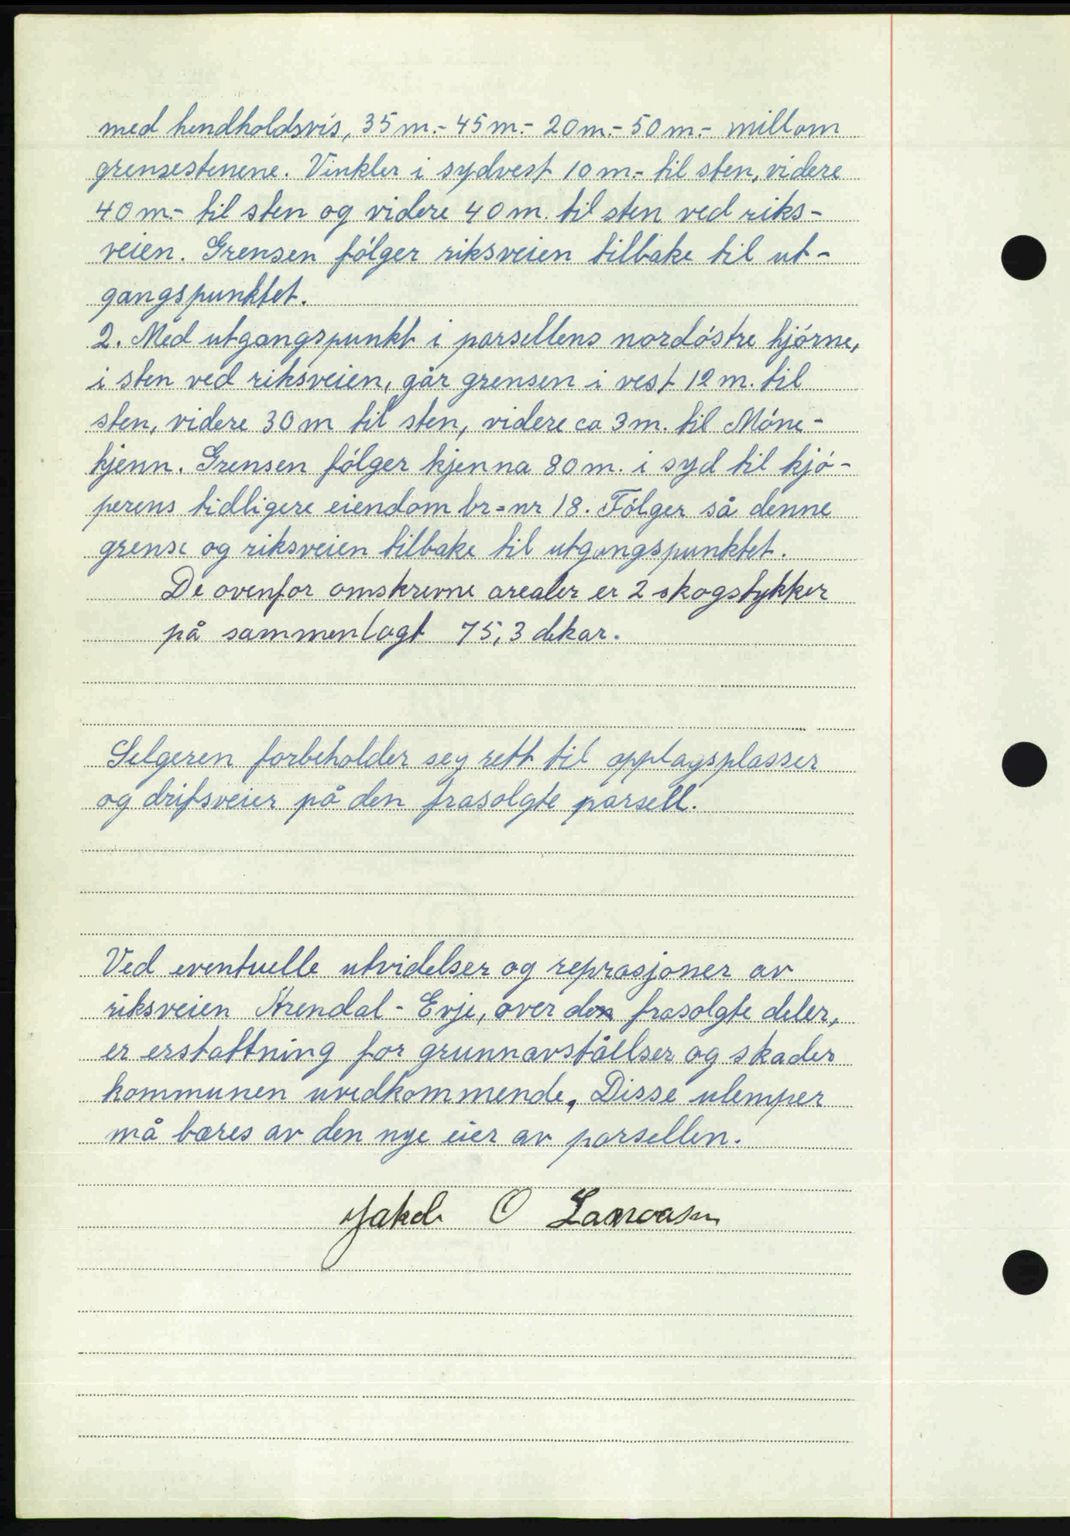 med hendholdsvis, 35 m.- 45 m.- 20 m.- 50 m.- millom
grensestenene. Vinkler i sydvest 10 m.- til sten, videre
40 m- til sten og videre 40 m. til sten ved riks-
veien. Grensen følger riksveien tilbake til ut-
gangspunktet.
2. Med utgangspunkt i parsellens nordøstre hjørne,
i sten ved riksveien, går grensen i vest 12 m. til
sten, videre 30 m til sten, videre ca 3 m. til Måne-
tjenn. Grensen følger tjenna 80 m. i syd til kjø-
perens tidligere eiendom br=nr 18. Følger så denne
grense og riksveien tilbake til utgangspunktet.
De ovenfor omskrevne arealer er 2 skogstykker
på sammenlagt 75,3 dekar.
Selgeren forbeholder seg rett til opplagsplasser
og driftsveier på den frasolgte parsell.
Ved eventuelle utvidelser og reprasjoner av
riksveien Arendal - Evje, over den frasolgte deler,
er erstattning for grunnavståelser og skader
kommunen uvedkommende. Disse ulemper
må bæres av den nye eier av parsellen.
Jakob O